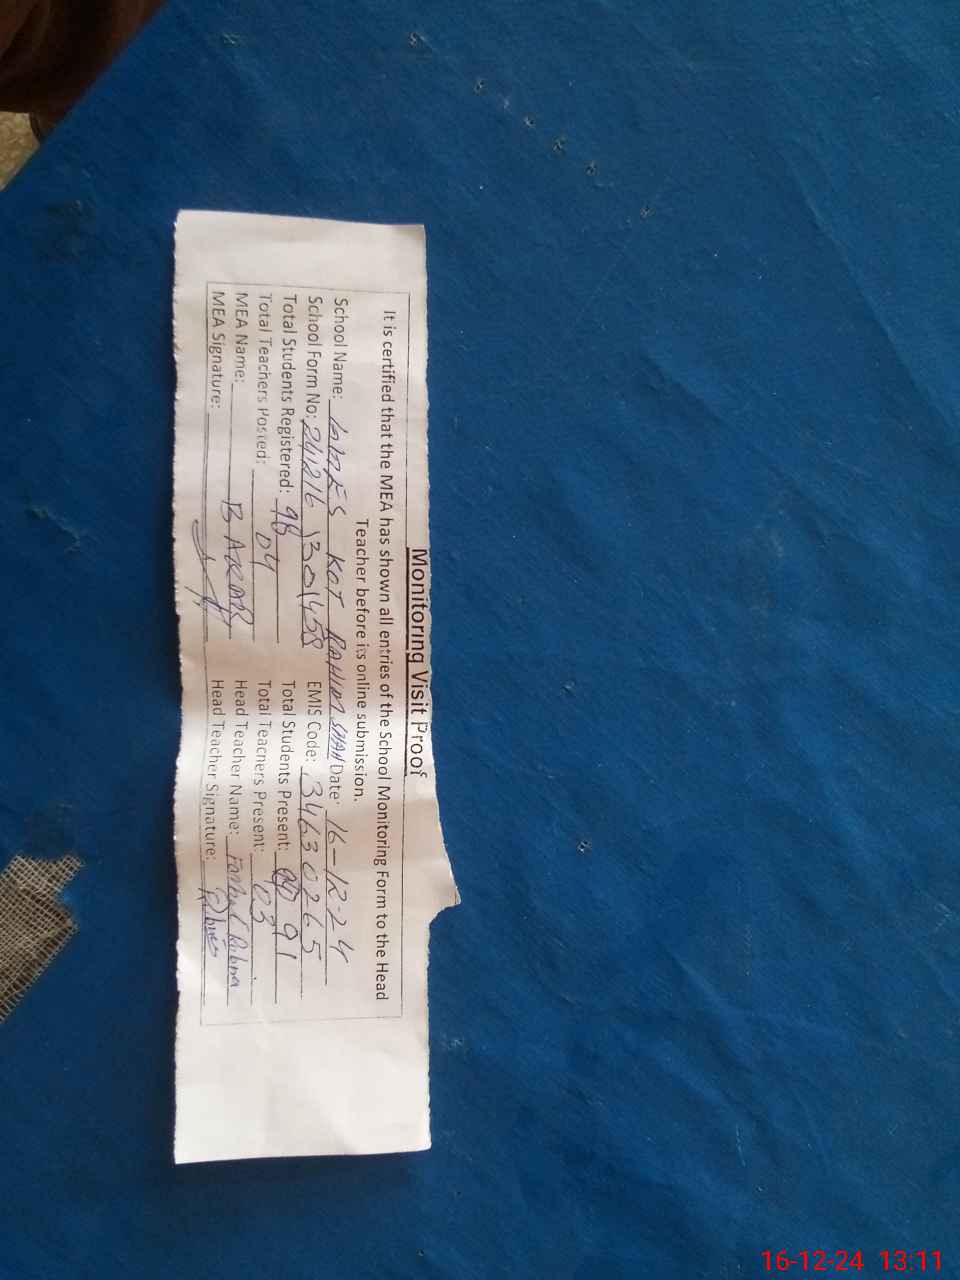 Monitoring Visit Proof
It is certified that the MEA has shown all entries of the School Monitoring Form to the Head
Teacher before its online submission.
School Name: KOT RAHIM SHAH Date: 16-12-24
School Form No: 241216 1301458 EMIS Code: 34630265
Total Students Registered: 98 Total Students Present: 91
Total Teachers Posted: 04 Total Teachers Present: 03
MEA Name: B AKBAR Head Teacher Name: Rubina
MEA Signature: Head Teacher Signature:
16-12-24 13:11